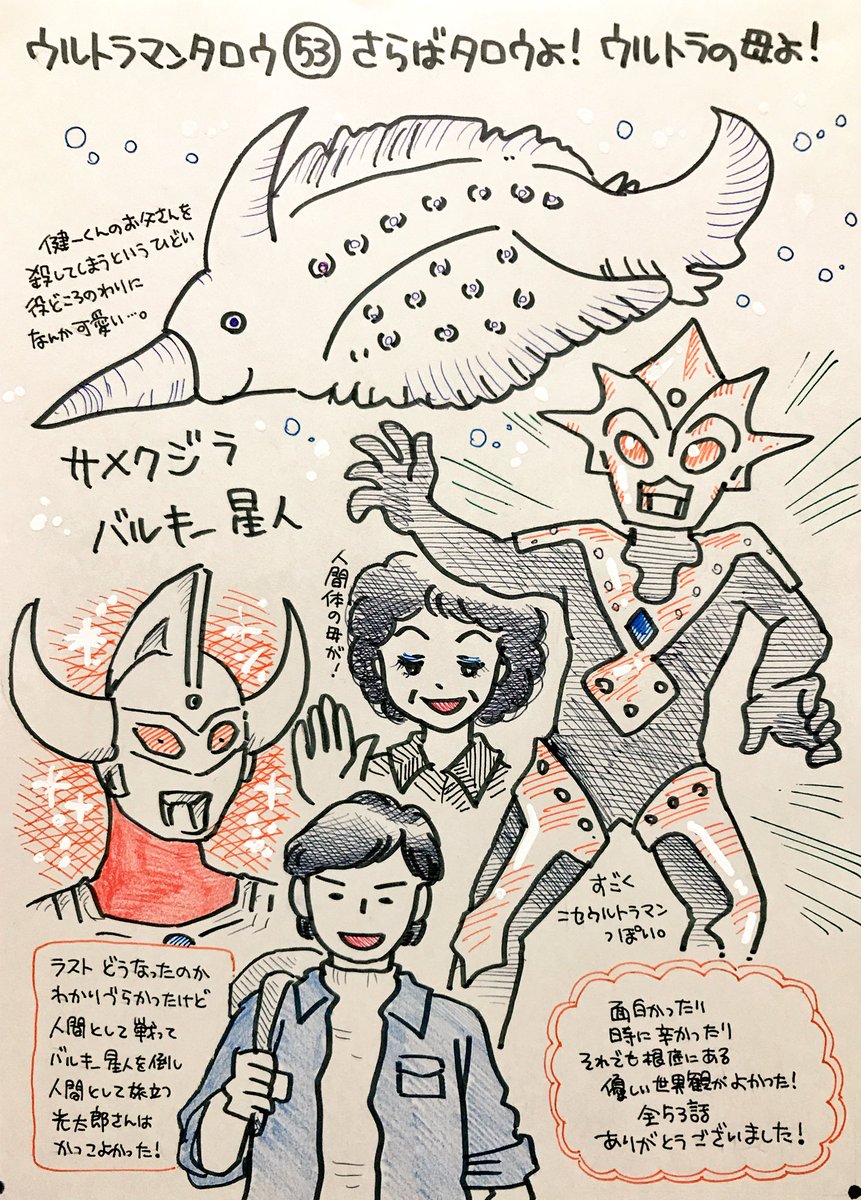 ウルトラマンタロウ 53 さらばタロウよ! ウルトラの母よ!
健一くんのお父さんを
殺してしまうというひどい
役どころのわりに
なんか可愛い…。
サメクジラ
バルキー星人
人間体の母が!
すごく
ニセウルトラマン
っぽい。
ラストどうなったのか
わかりづらかったけど
人間として戦って
バルキー星人を倒し
人間として旅立つ
光太郎さんは
かっこよかった!
面白かったり
時に辛かったり
それでも根底にある
優しい世界観がよかった!
全53話
ありがとうございました!